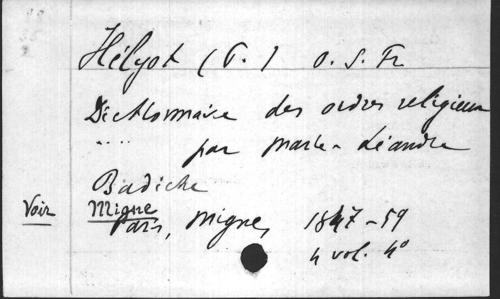 Hélyot (P.) O. S. Fr.
Dictionnaire des ordres religieux
.... par Marie-Léandre
Badiche
Voir Migne
Paris, Migne, 1847-59
4 vol. 4°